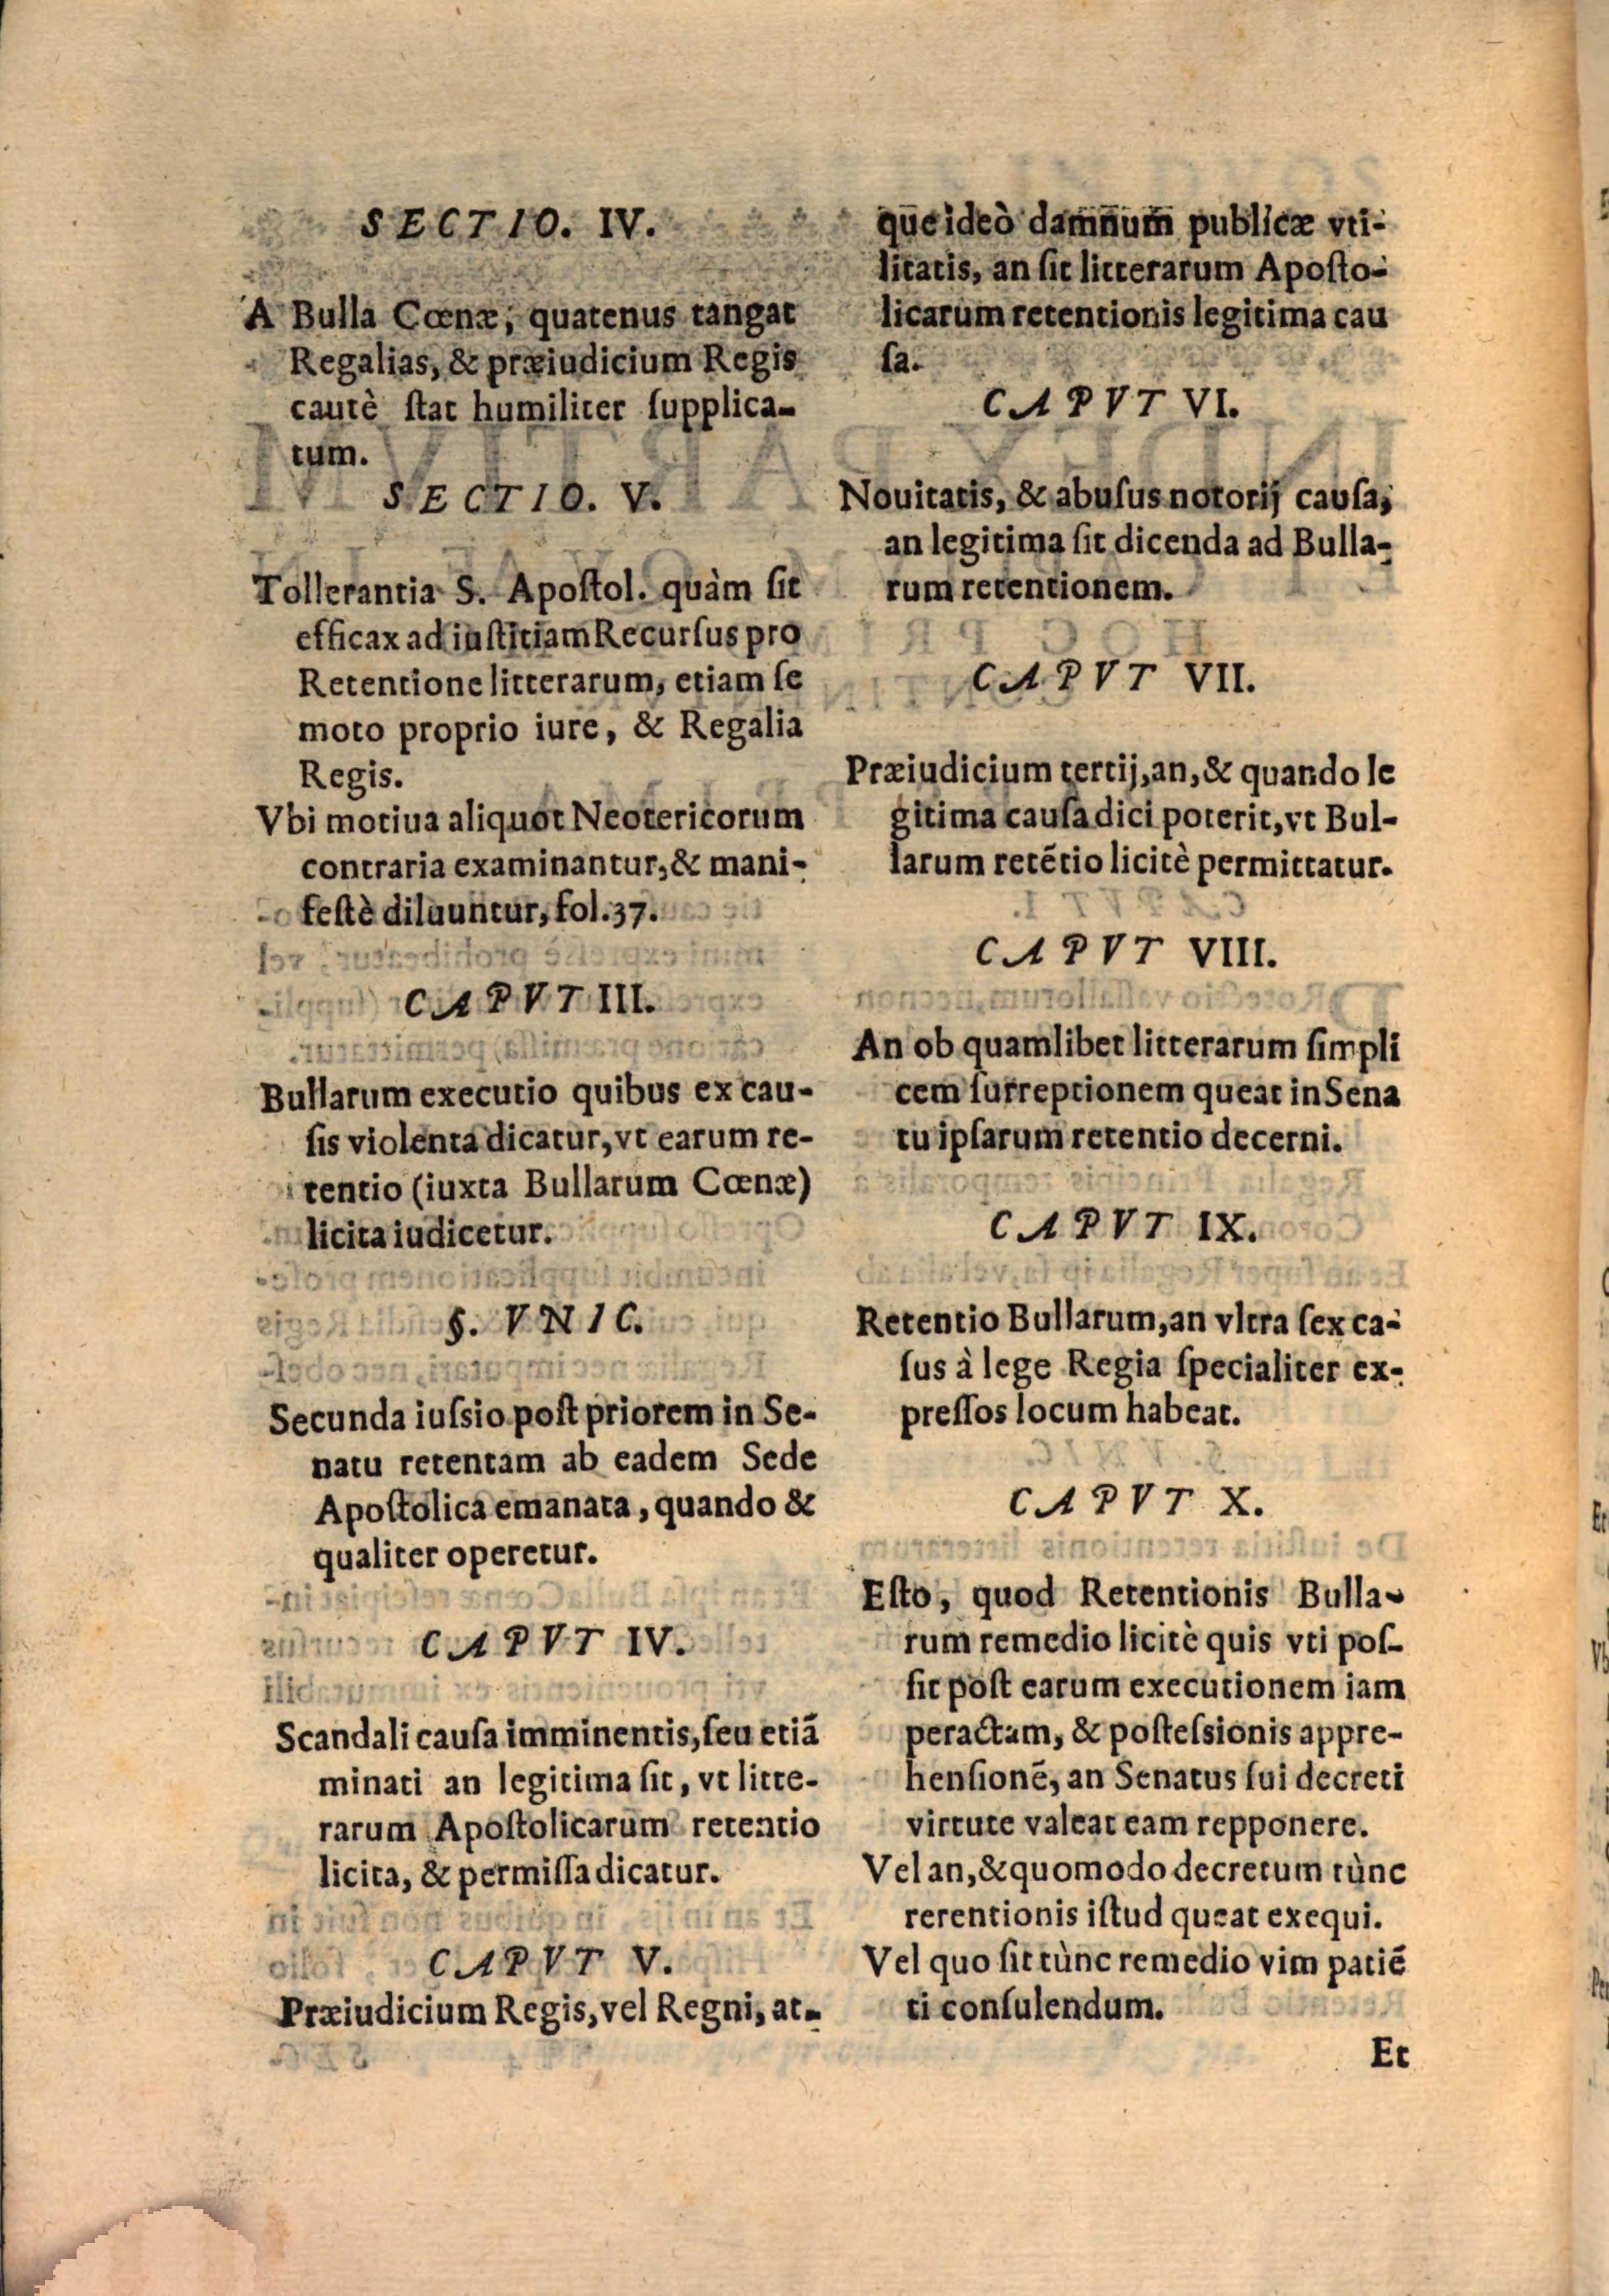 SECTIO. IV.
A Bulla Cœnæ, quatenus tangat
Regalias, & præiudicium Regis
cautè ſtat humiliter ſupplica-
tum.
SECTIO. V.
Tollerantia S. Apoſtol. quàm ſit
efficax ad iuſtitiam Recurſus pro
Retentione litterarum, etiam ſe
moto proprio iure, & Regalia
Regis.
Vbi motiua aliquot Neotericorum
contraria examinantur, & mani-
feſtè diluuntur, fol. 37.
CAPVT III.
Bullarum executio quibus ex cau-
ſis violenta dicatur, vt earum re-
tentio (iuxta Bullarum Cœnæ)
licita iudicetur.
§. VNIC.
Secunda iuſsio poſt priorem in Se-
natu retentam ab eadem Sede
Apoſtolica emanata, quando &
qualiter operetur.
CAPVT IV.
Scandali cauſa imminentis, ſeu etiã
minati an legitima ſit, vt litte-
rarum Apoſtolicarum retentio
licita, & permiſſa dicatur.
CAPVT V.
Præiudicium Regis, vel Regni, at-
que ideò damnum publicæ vti-
litatis, an ſit litterarum Apoſto-
licarum retentionis legitima cau
ſa.
CAPVT VI.
Nouitatis, & abuſus notorij cauſa,
an legitima ſit dicenda ad Bulla-
rum retentionem.
CAPVT VII.
Præiudicium tertij, an, & quando le
gitima cauſa dici poterit, vt Bul-
larum retẽtio licitè permittatur.
CAPVT VIII.
An ob quamlibet litterarum ſimpli
cem ſurreptionem queat in Sena
tu ipſarum retentio decerni.
CAPVT IX.
Retentio Bullarum, an vltra ſex ca-
ſus à lege Regia ſpecialiter ex-
preſſos locum habeat.
CAPVT X.
Eſto, quod Retentionis Bulla-
rum remedio licitè quis vti poſ-
ſit poſt earum executionem iam
peractam, & poſteſsionis appre-
henſionẽ, an Senatus ſui decreti
virtute valeat eam repponere.
Vel an, & quomodo decretum tùnc
rerentionis iſtud queat exequi.
Vel quo ſit tùnc remedio vim patiẽ
ti conſulendum.
Et